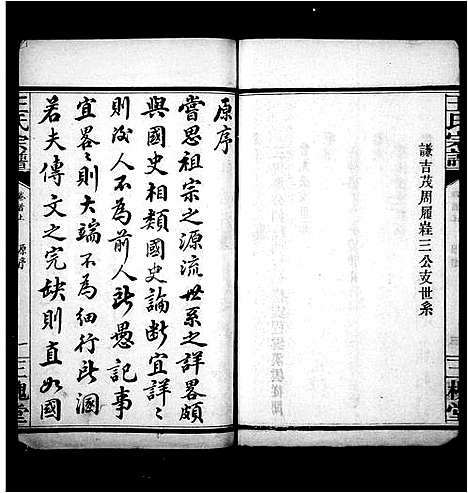 謙吉茂周履嵀三公支世系
王氏宗譜
三槐堂
原序
嘗思祖宗之源流世系之詳畧頗
與國史相類國史論斷宜詳〻
則後人不為前人所愚記事
宜畧〻則大端不為細行所溷
若夫傳文之完缺則直如國
王氏宗譜
卷首上
原序
一
三槐堂